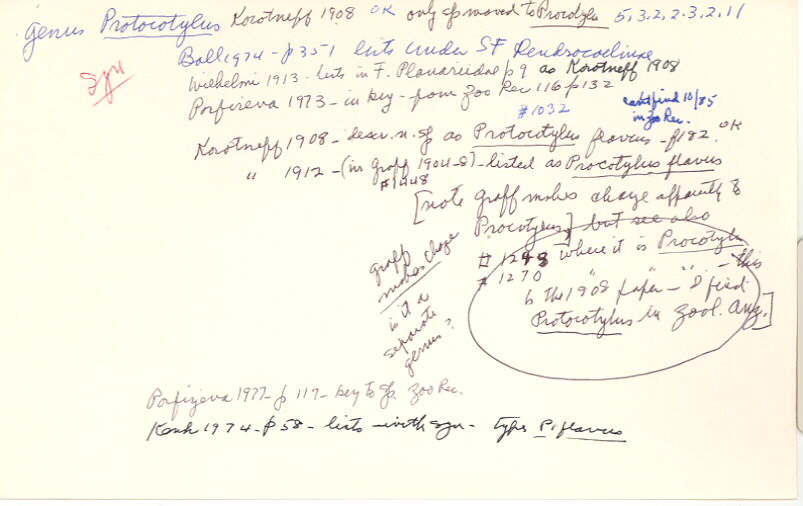 Genus Protocotylus Korotneff 1908 OK only sp moved to Procotylus 5,3,2,2,3,2,11
Syn
Ball 1974 - p 351 lists under SF Dendrocoelinae
Wilhelmi 1913 - lists in F. Planariidae p 9 as Korotneff 1908
Porfirjeva 1973 - in key - from Zoo Rec 116 p 132
#1032
can't find 10/85
in Zoo Rec.
Korotneff 1908 - descr. n. sp as Protocotylus flavus - p 182. OK
" 1912 - (in Graff 1904-8) - listed as Procotylus flavus
#1448
[note Graff makes change apparently to
Procotylus] but see also
# 1298 where it is Procotylus
# 1270 " " " - this
is the 1908 paper - I find
Protocotylus in Zool. Anz.]
Graff
makes change
is it a
separate
genus?
Porfirjeva 1977 - p 119 - key to sp. Zoo Rec.
Kenk 1974 - p 58 - lists - with syn - type P. flavus